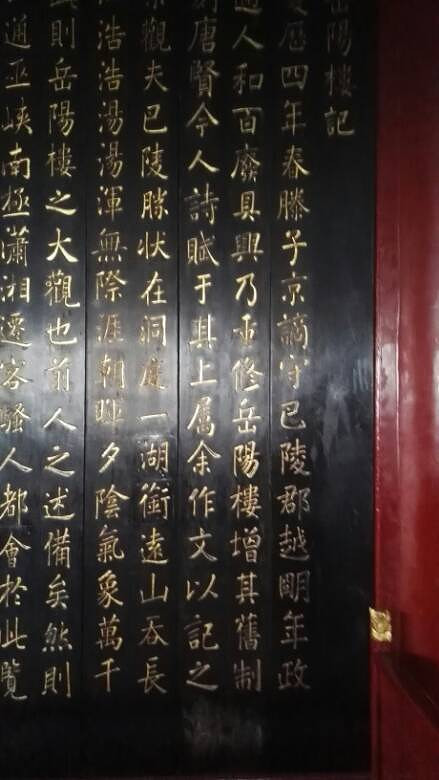 岳陽樓記
曆四年春滕子京謫守巴陵郡越明年政
通人和百廢具興乃重修岳陽樓增其舊制
刻唐賢今人詩賦于其上屬余作文以記之
觀夫巴陵勝狀在洞庭一湖銜遠山吞長
浩浩湯湯渾無際涯朝暉夕陰氣象萬千
此則岳陽樓之大觀也前人之述備矣然則
通巫峽南極瀟湘遷客騷人都會於此覽